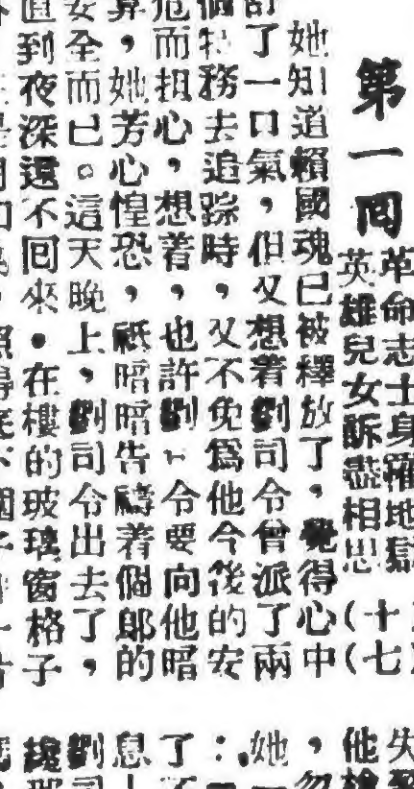 第一回
革命志士身羅地獄
英雄兒女訴盡相思
(十七)
她知道賴國魂已被釋放了，覺得心中
了一口氣，但又想着劉司令曾派了兩
個特務去追踪時，又不免爲他今後的安
危而担心，想着，也許劉令要向他暗
算，她芳心惶恐，祗暗暗告禱着個郎的
安全而已。這天晚上，劉司令出去了，
直到夜深還不回來。在樓的玻璃窗格子
失
他
，
：她一
了
息
劉司